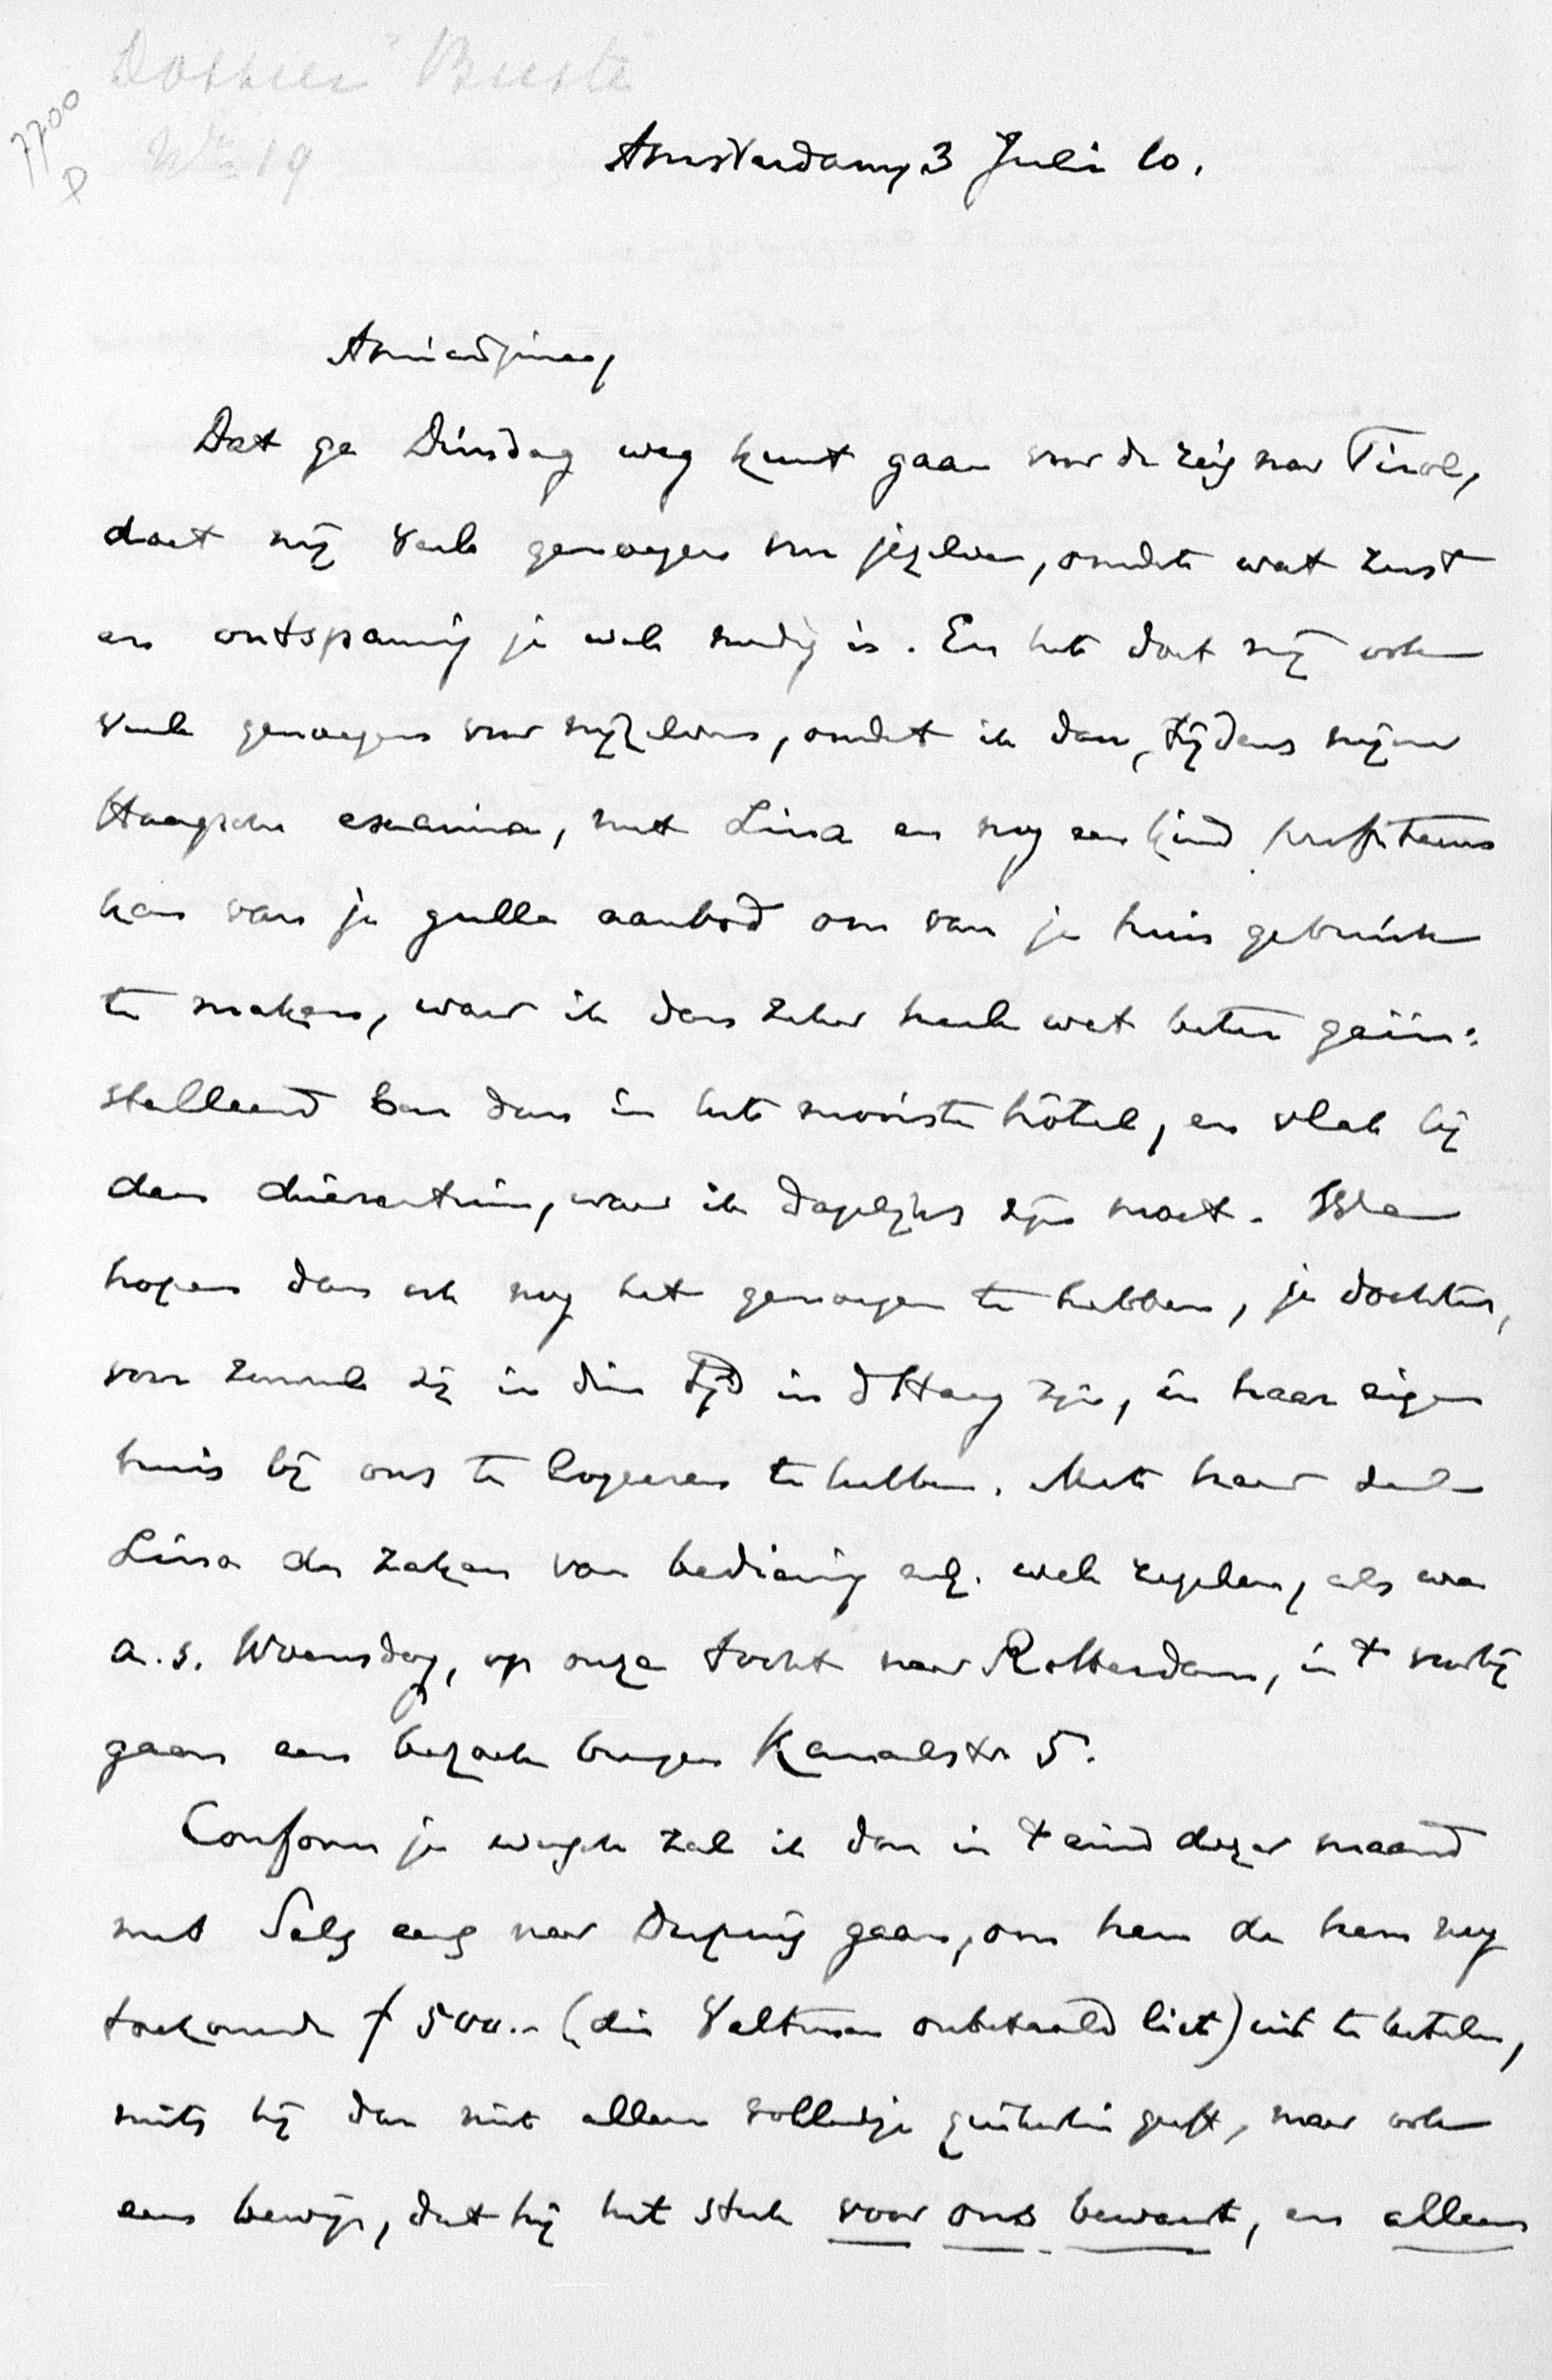 Dossier "Buste"
7700
D
No 19
Amsterdam, 3 Juli 10.
Amice
Dat ge Dinsdag weg kunt gaan voor de reis naar Tirol,
doet mij veel genoegen voor jezelven, omdat wat rust
en ontspanning je wel noodig is. En het doet mij ook
veel genoegen voor mijzelven, omdat ik dan, tijdens mijne
Haagsche examina, met Lina en nog een kind profiteeren
kan van je gulle aanbod om van je huis gebruik
te maken, waar ik dan zeker heel wat beter geïn:
stalleerd ben dan in het mooiste hôtel, en vlak bij
den dierentuin, waar ik dagelijks zijn moet. We
hopen dan ook nog het genoegen te hebben, je dochter,
voor zooveel zij in dien tijd in d Haag zijn, in haar eigen
huis bij ons te logeeren te hebben. Met haar zal
Lina de zaken van bediening enz. wel regelen, als we
a.s. Woensdag, op onze tocht naar Rotterdam, in 't voorbij
gaan een bezoek brengen Kanaalstr. 5.
Conform je wensch zal ik dan in 't eind dezer maand
met eens naar Dupuis gaan, om hem de hem nog
toekomende f 500.- (die Veltman onbetaald liet) uit te betalen,
mits hij dan niet alleen volledige quitantie geeft, maar ook
een bewijs, dat hij het stuk voor ons bewaart, en alleen